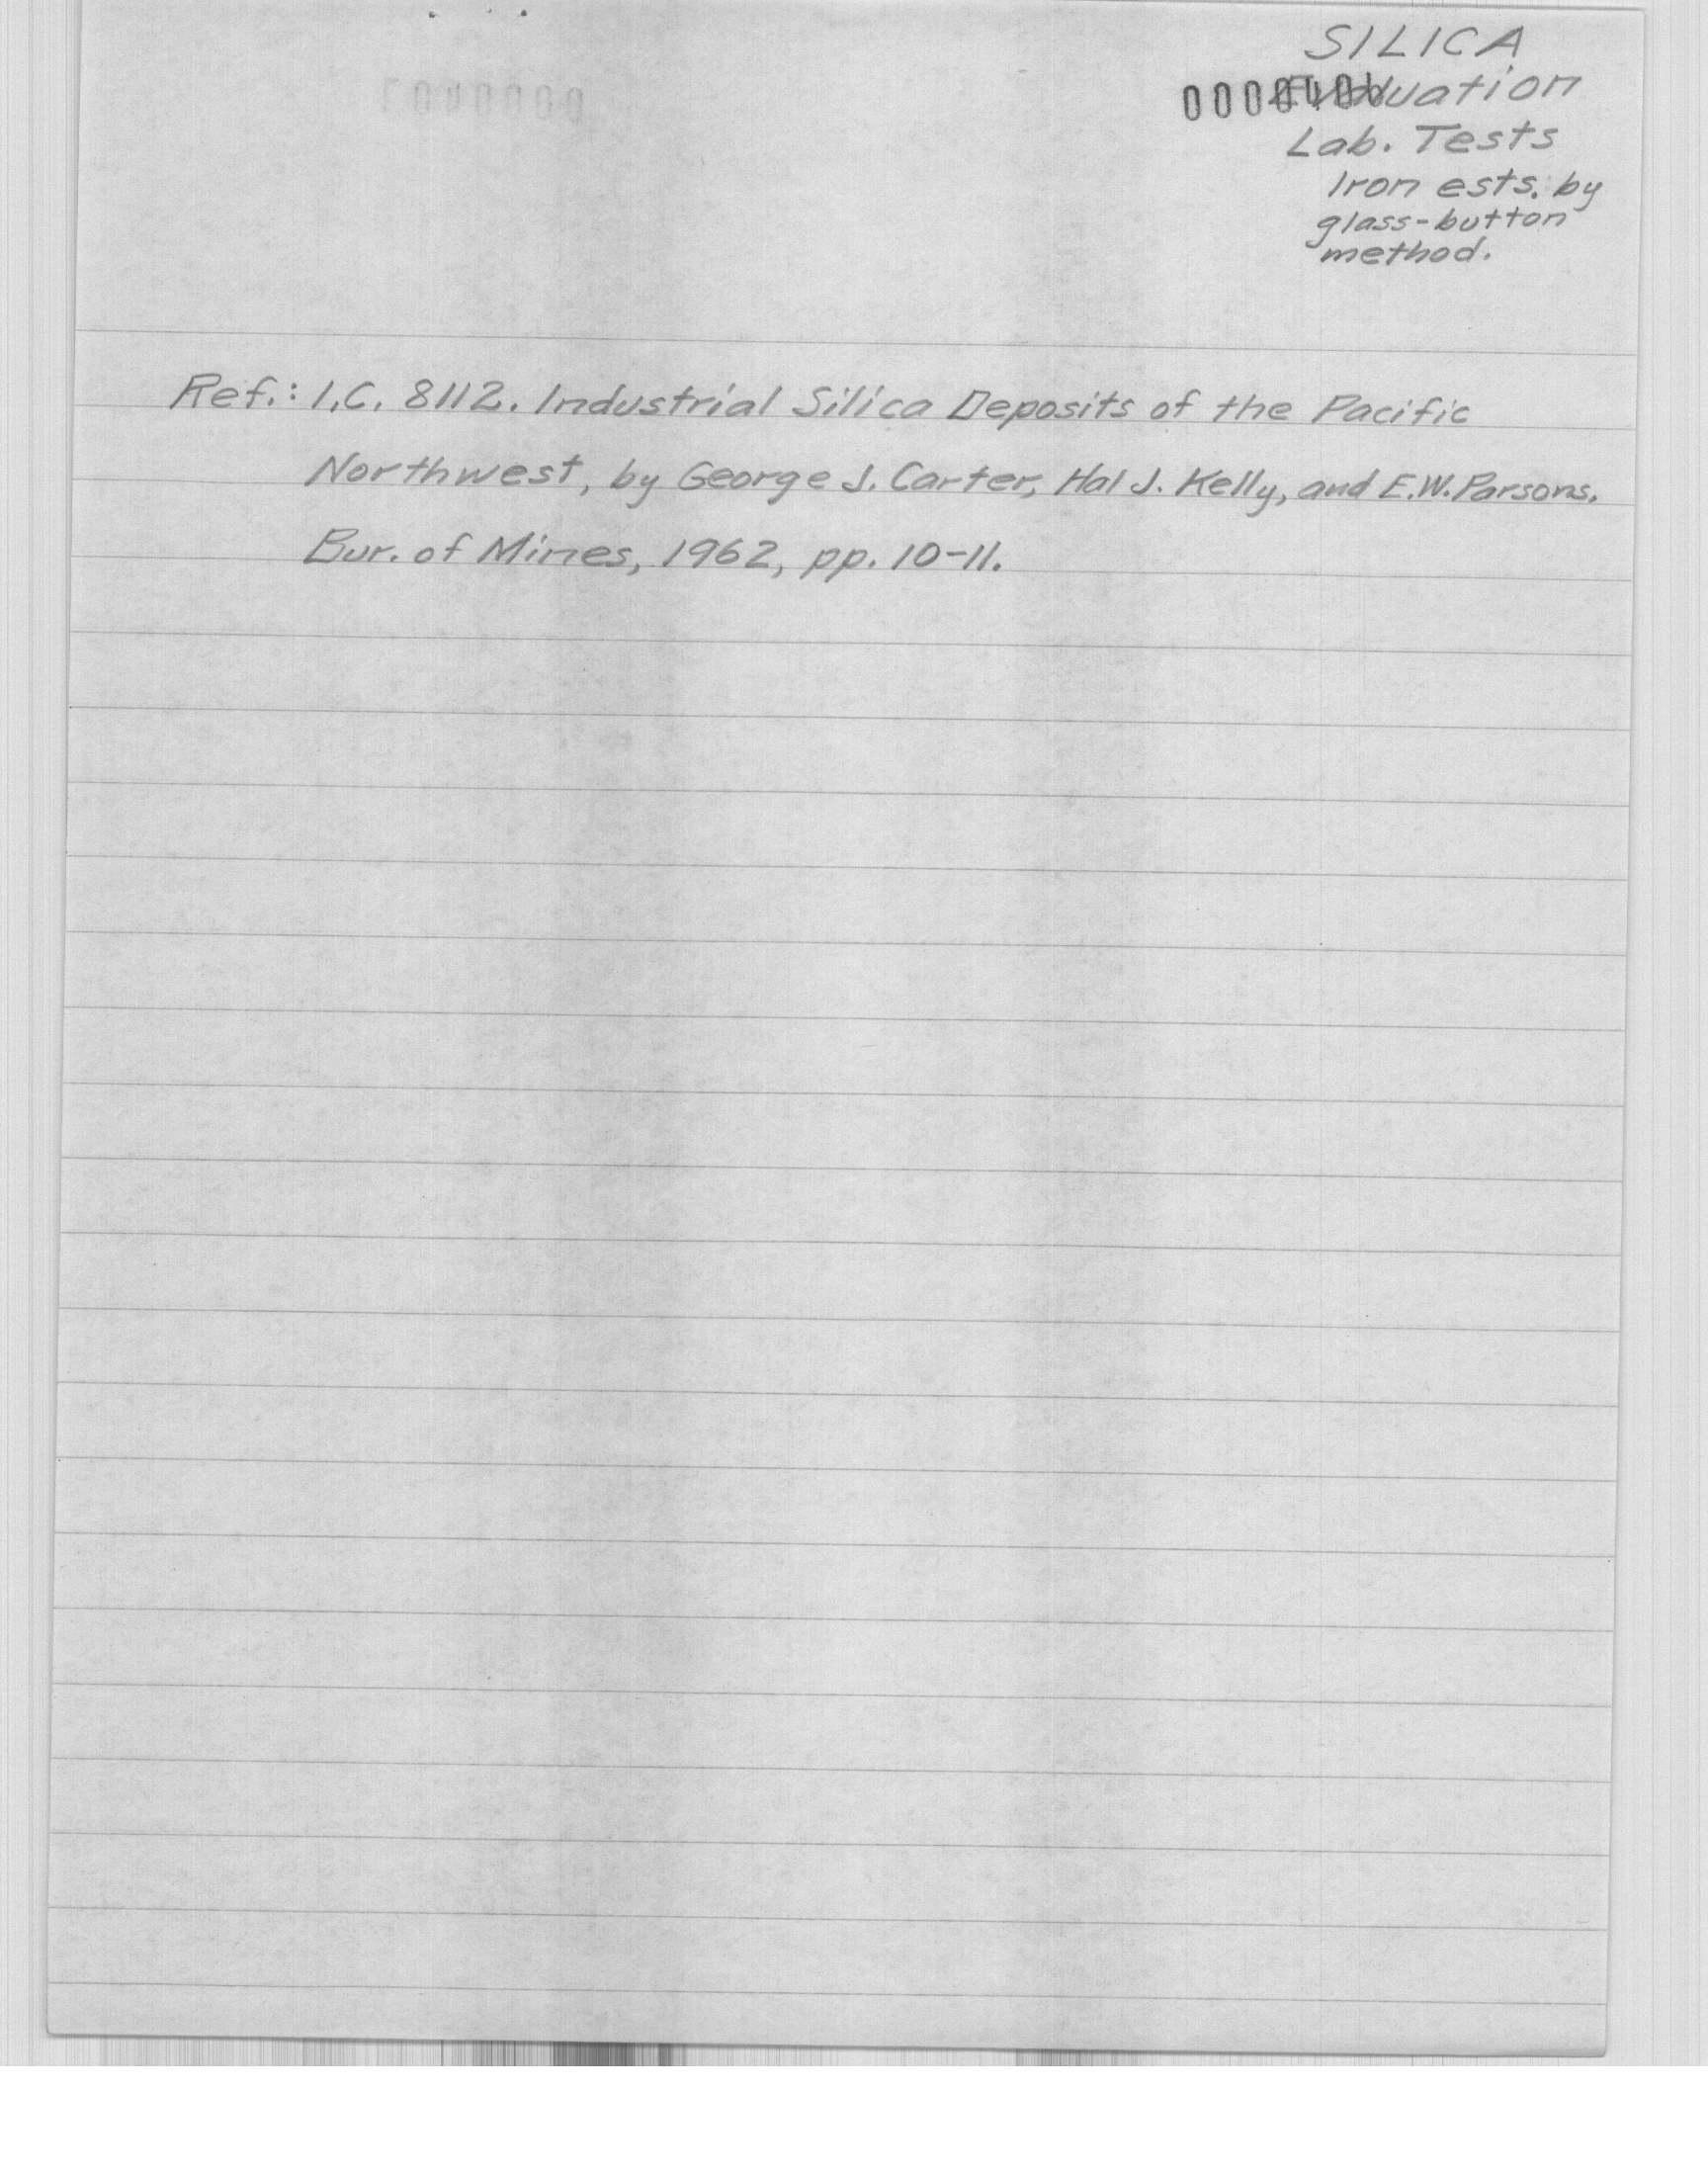 SILICA
Evaluation
Lab. Tests
Iron ests. by
glass-button
method.
Ref.: I.C. 8112. Industrial Silica Deposits of the Pacific
Northwest, by George J. Carter, Hal J. Kelly, and E.W. Parsons.
Bur. of Mines, 1962, pp. 10-11.